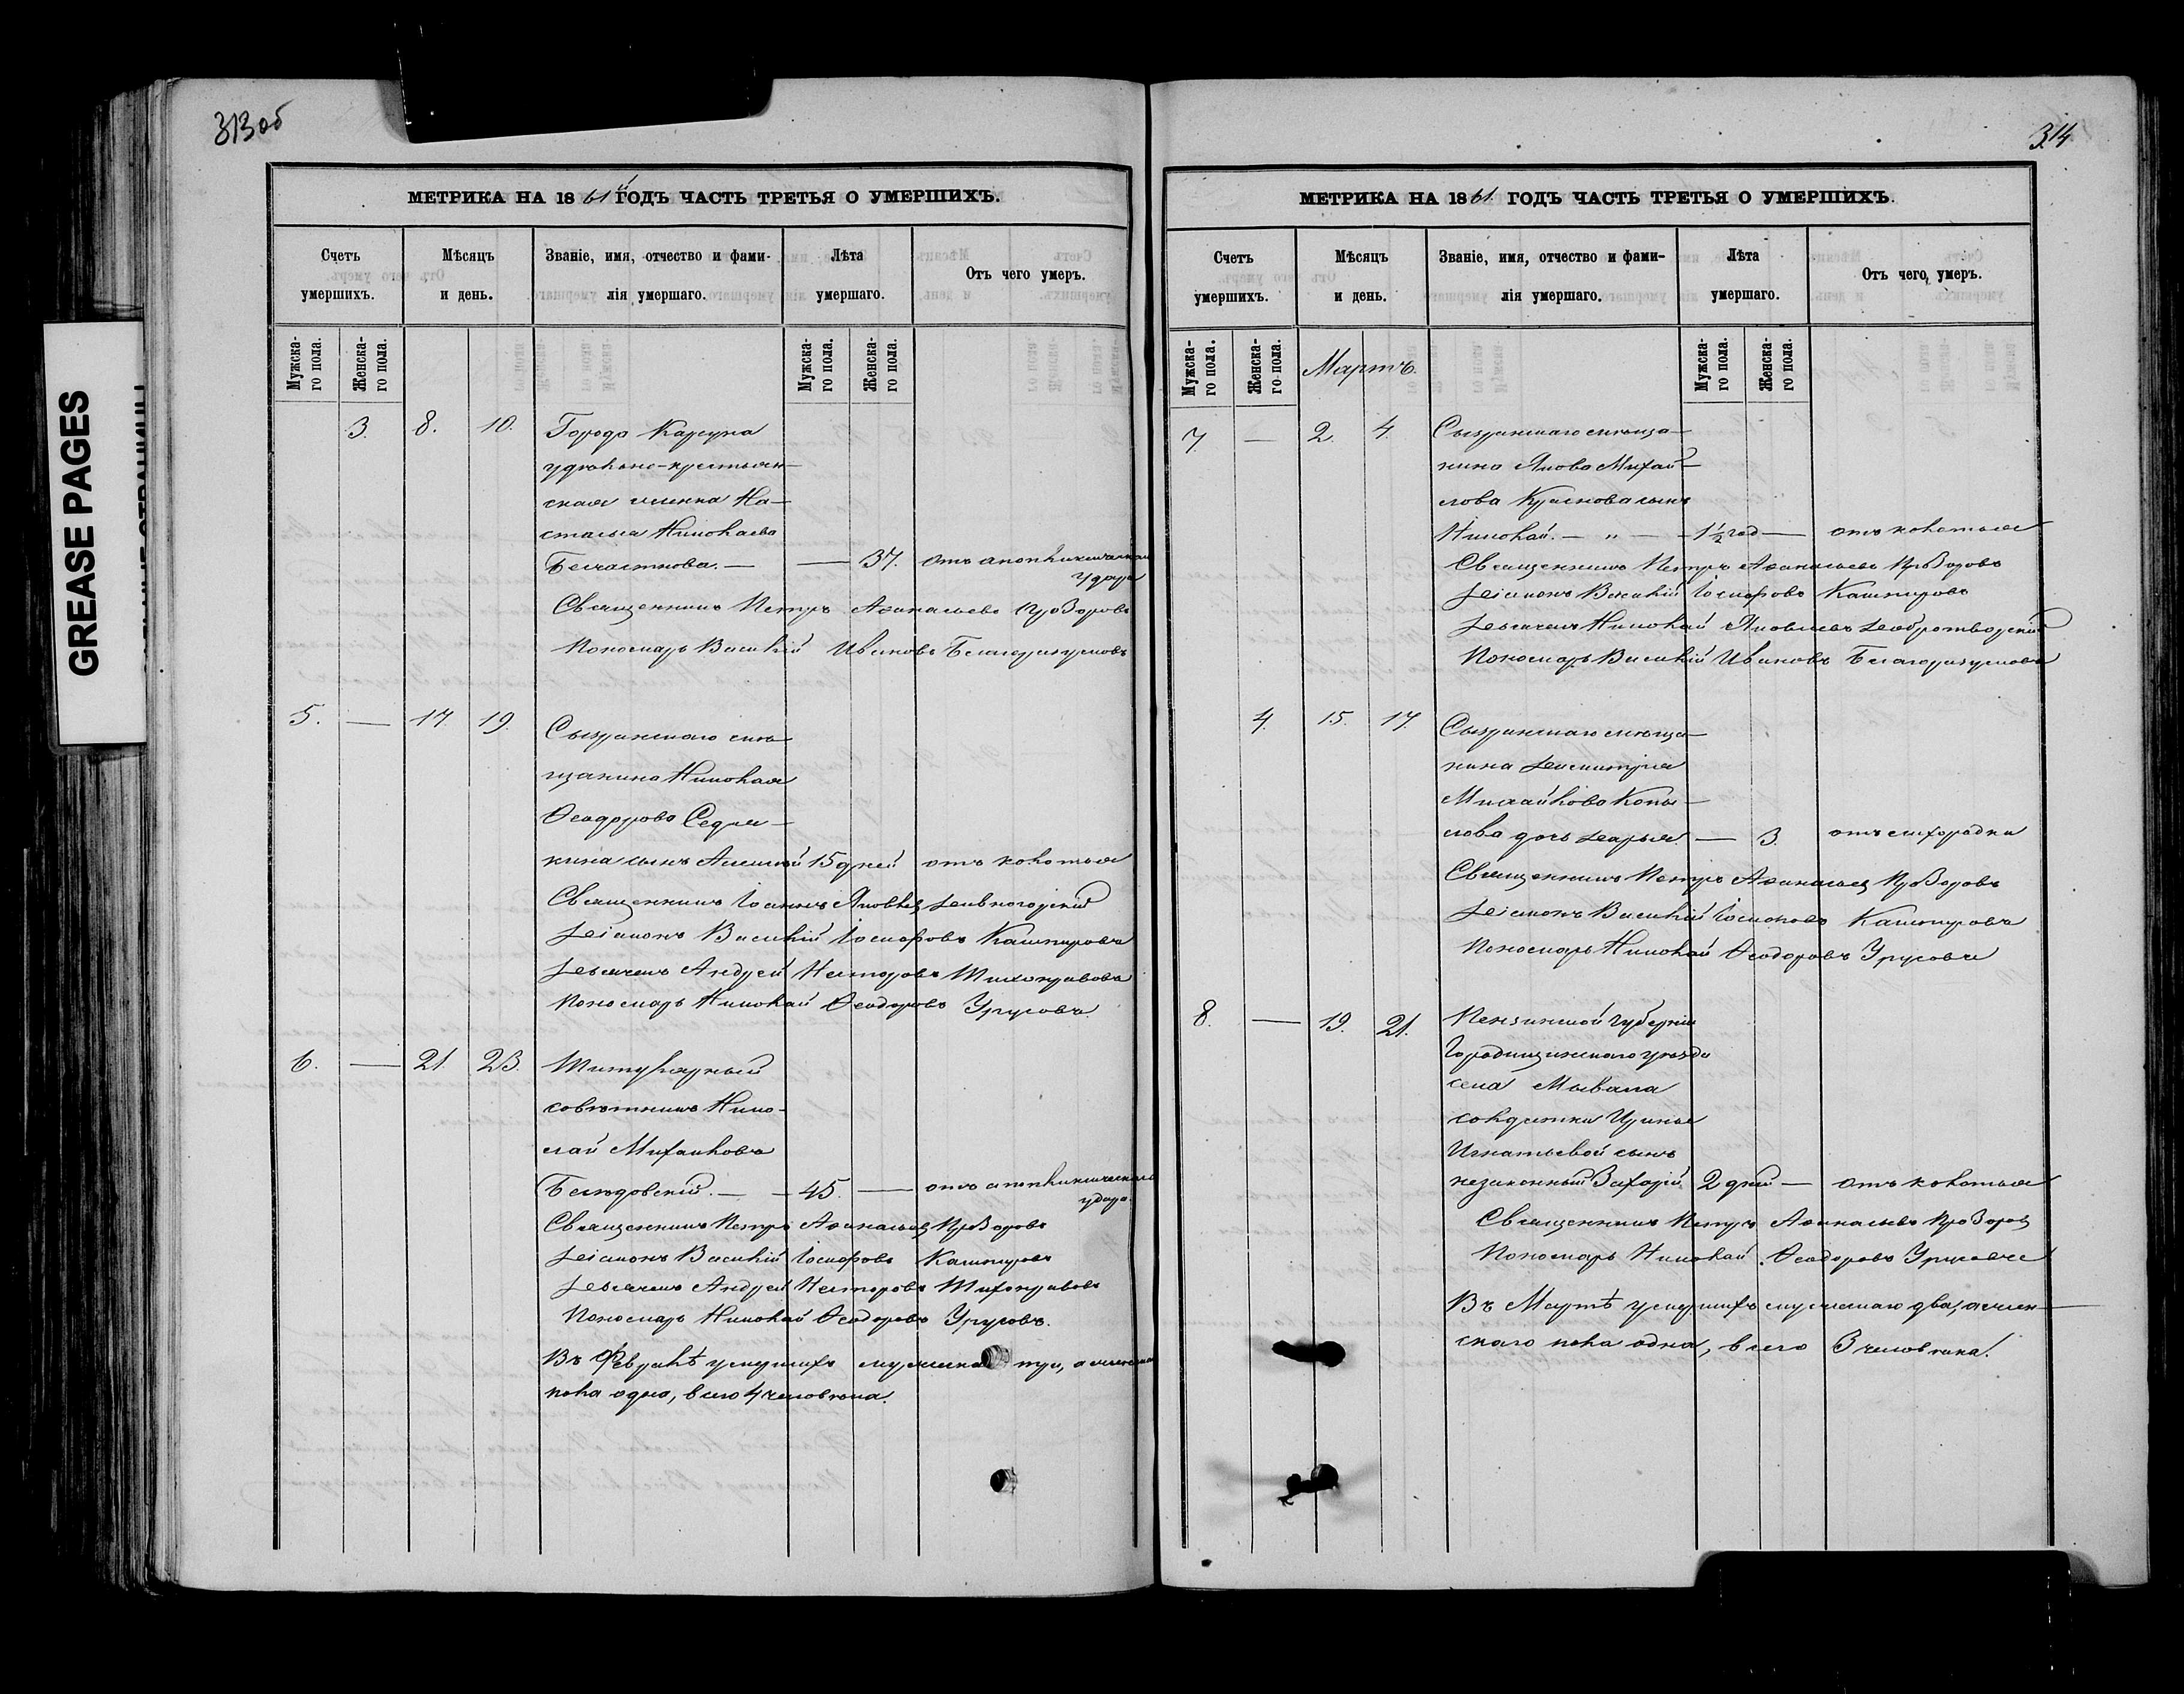 GREASE PAGES
313 об
МЕТРИКА НА 1861й ГОДЪ ЧАСТЬ ТРЕТЬЯ О УМЕРШИХЪ.
Счетъ умершихъ.
Мѣсяцъ и день.
Званіе, имя, отчество и фамилія умершаго.
Лѣта умершаго.
Отъ чего умеръ.
Мужска-го пола.
Женска-го пола.
Мужска-го пола.
Женска-го пола.
3. 8. 10. Города Карсуна
удѣльно-крестьян-
ская женка На-
талья Николаева
Безчастнова. — — 37. отъ апоплексическаго
удара
Священникъ Петръ Аѳанасьевъ Прозоровъ
Пономарь Василій Ивановъ Благоразумовъ
5. — 17. 19. Сызранскаго мѣ-
щанина Николая
Ѳеодорова Седля-
кина сынъ Алексѣй 15 дней отъ колотья
Священникъ Іоаннъ Яковлев Дивногорскій
Діаконъ Василій Іосифовъ Кашпировъ
Дьячекъ Андрей Несторовъ Тихонравовъ
Пономарь Николай Ѳеодоровъ Урусовъ
6. — 21. 23. Титулярный
совѣтникъ Нико-
лай Михаиловъ
Беллѣдовскій. — — 45. — отъ апоплексическаго
удара.
Священникъ Петръ Аѳанасьев Прозоровъ
Діаконъ Василій Іосифовъ Кашпировъ
Дьячекъ Андрей Несторовъ Тихонравовъ
Пономарь Николай Ѳеодоровъ Урусовъ.
Въ Февралѣ умершихъ мужска три, а женска
пола одна, всего 4 человѣка.
314
МЕТРИКА НА 1861. ГОДЪ ЧАСТЬ ТРЕТЬЯ О УМЕРШИХЪ.
Счетъ умершихъ.
Мѣсяцъ и день.
Званіе, имя, отчество и фамилія умершаго.
Лѣта умершаго.
Отъ чего умеръ.
Мужска-го пола.
Женска-го пола.
Мартъ.
Мужска-го пола.
Женска-го пола.
7. — 2. 4. Сызранскаго мѣща-
нина Якова Михай-
лова Краснова сынъ
Николай. — „ — 1½ год — отъ колотья
Священникъ Петръ Аѳанасьевъ Прозоровъ
Діаконъ Василій Іосифовъ Кашпировъ
Дьячекъ Николай Яковлевъ Добротворскій
Пономарь Василій Ивановъ Благоразумовъ
4. 15. 17. Сызранскаго мѣща-
нина Димитрія
Михайлова Копы-
лова дочь Дарья. — 3. отъ лихорадки
Священникъ Петръ Аѳанасьев Прозоровъ
Діаконъ Василій Іосифовъ Кашпировъ
Пономарь Николай Ѳеодоровъ Урусовъ
8. — 19. 21. Пензинской губерніи
Городищинскаго уѣзда
села Мывала
солдатки Ирины
Игнатьевой сынъ
незаконный Захарій 2 дней — отъ колотья
Священникъ Петръ Аѳанасьевъ Прозоров
Пономарь Николай Ѳеодоровъ Урусовъ
Въ Мартѣ умершихъ мужскаго два, а жен-
скаго пола одна, всего 3 человѣка.